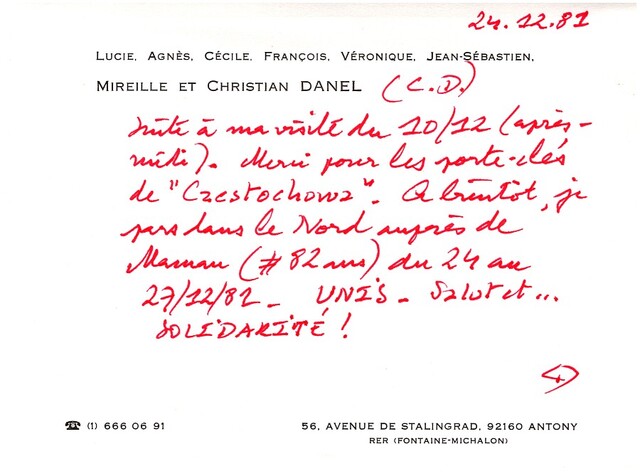 24.12.81
Lucie, Agnès, Cécile, François, Véronique, Jean-Sébastien,
Mireille et Christian DANEL (C.D.)
suite à ma visite du 10/12 (après-
midi). Merci pour les porte-clés
de "Czestochowa". A bientôt, je
pars dans le Nord auprès de
Maman (# 82 ans) du 24 au
27/12/81 - UNIS - Salut et...
SOLIDARITÉ !
☎ (1) 666 06 91
56, AVENUE DE STALINGRAD, 92160 ANTONY
RER (FONTAINE-MICHALON)